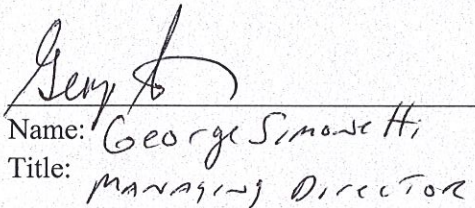 Name: George Simonetti
Title: Managing Director